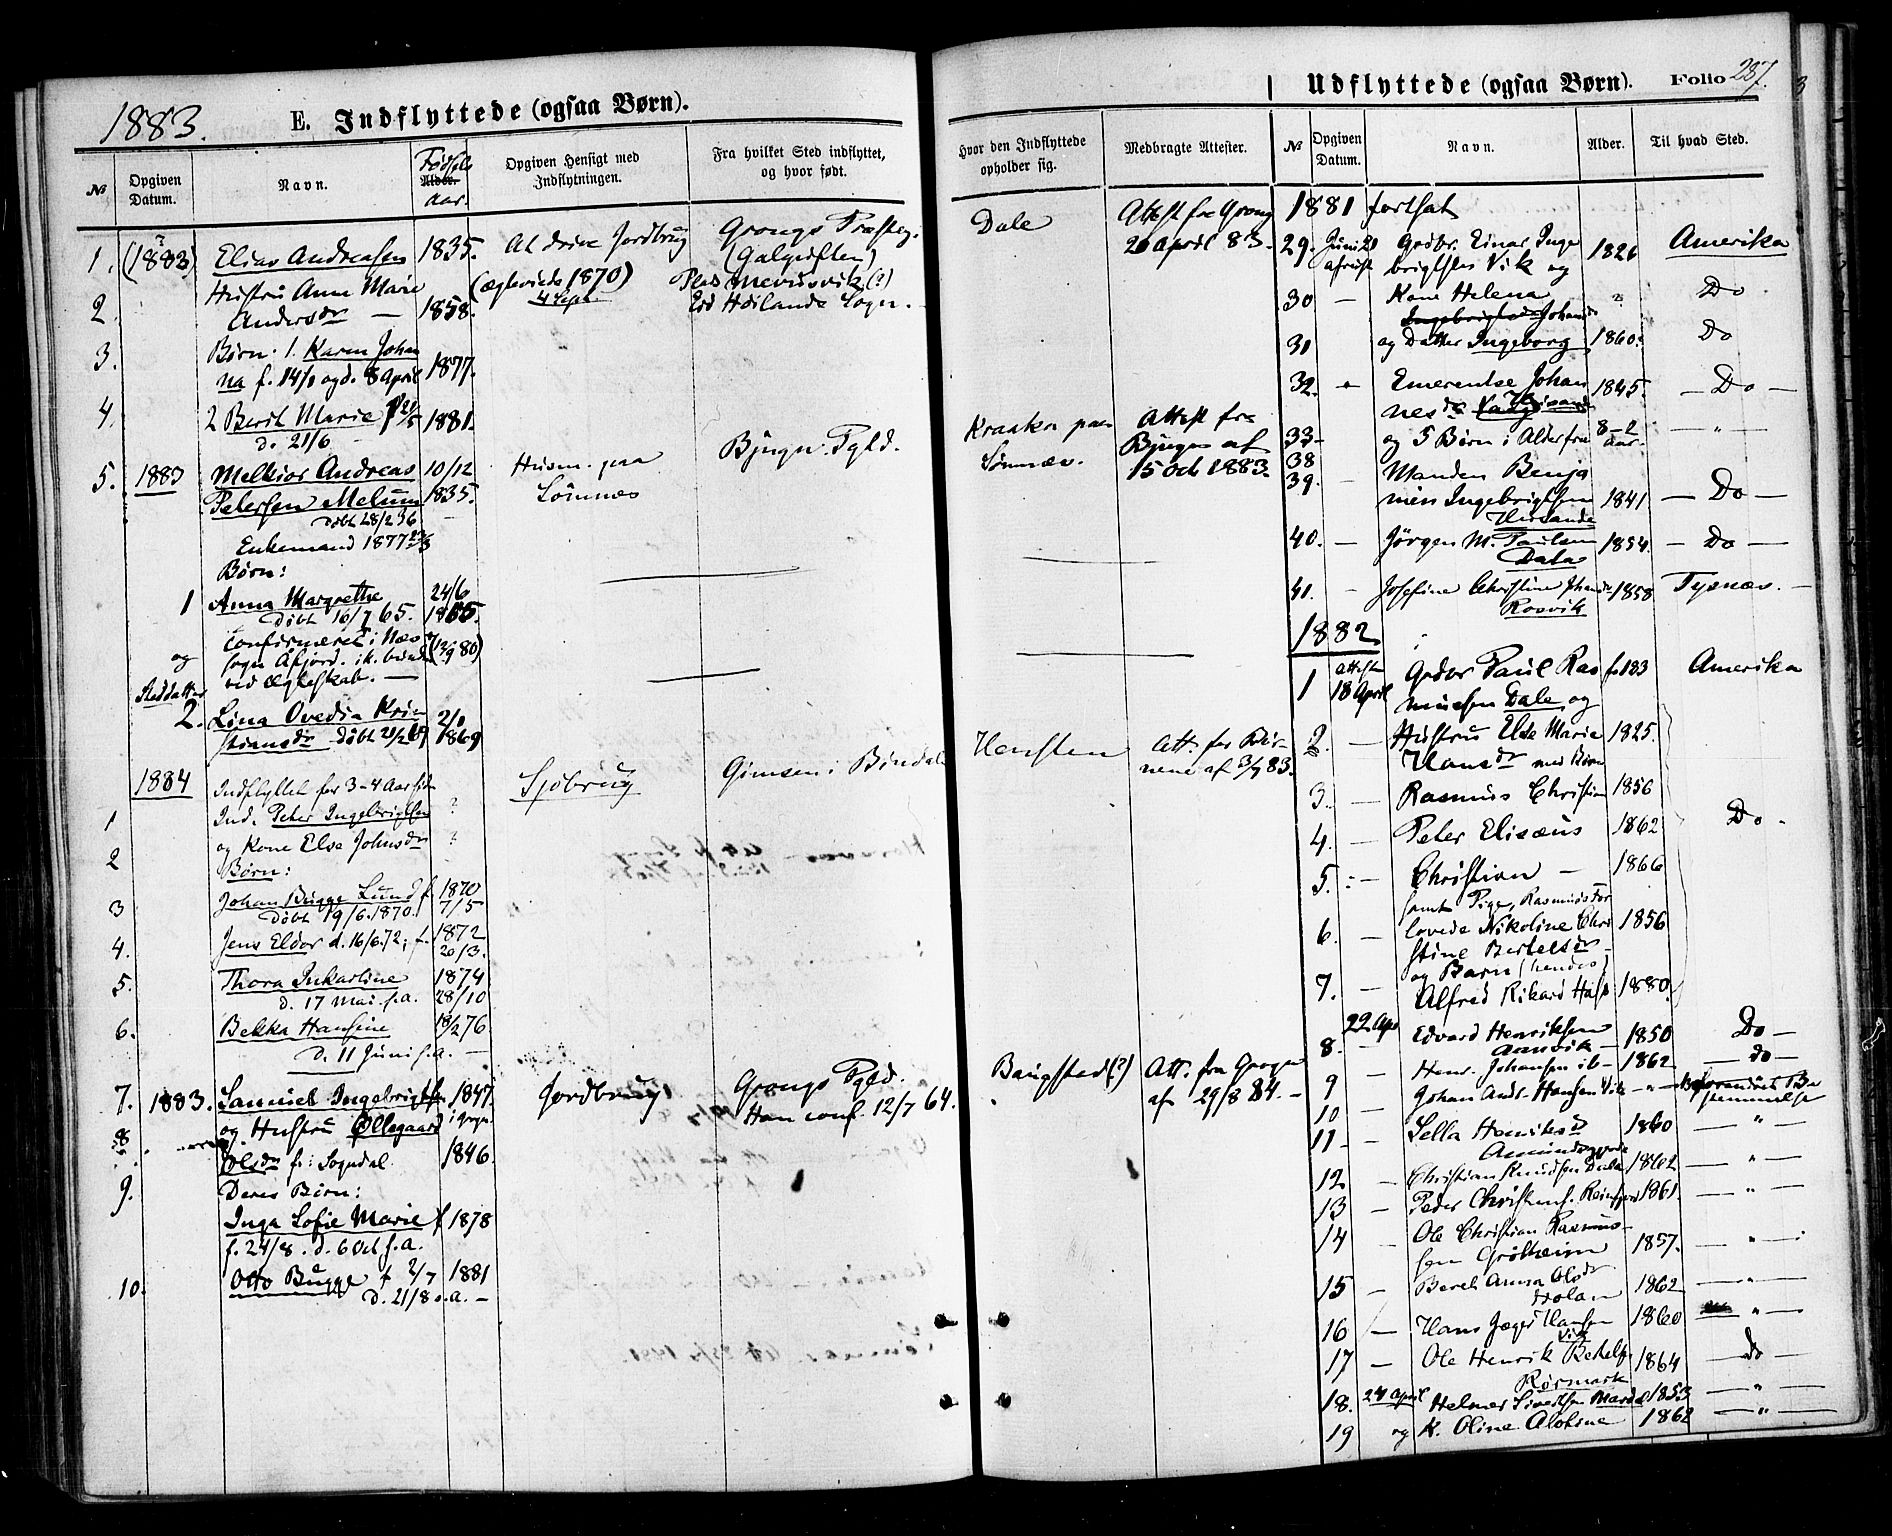 1883.
E. Indflyttede (ogsaa Børn).
№
Opgiven Datum.
Navn.
Fødsels
Alder.
aar.
Opgiven Hensigt med Indflytningen.
Fra hvilket Sted indflyttet, og hvor født.
1. (1883) Elias Andreasen 1835. At drive Jordbrug Grongs Præsteg.
(Galgeften)
Hustru Anne Marie (ægteviede 1870) Plads
2. Andersdr — 1858. 4 Sept Høilands Sogn. —
3. Børn. 1. Karen Johan
na f. 14/1 og d. 8 April 1877.
4. 2 Berit Marie f 29/5 1881.
d. 21/6 —
5. 1883 Melkior Andreas 10/12 Husm. paa Bjugn Pgld.
Petersen Melum 1835. Sømnes
Døbt 28/2 36
Enkemand 1877 23/3
Børn:
1 Anna Margrethe 24/6
Døbt 16/7 65. 1865.
confirmeret i Næs
og sogn Åfjord. ik. bunden (12/9 80)
Steddatter ved Ægteskab. —
2. Lina Ovedia Kris 2/1
tiansdr døbt 21/2 69 1869
1884 Indflyttet for 3-4 Aar siden Sjøbrug Gimsen i Bindal
1 Ind. Peter Ingebrigtsen ?
2 og Kone Else Johnsdr ?
Børn:
3 Johan Bugge Lund f 1870
Døbt 19/6.1870. 7/5
4. Jens Eldor d. 16/6.72; f. 1872
20/3.
5. Thora Inkarline 1874
d. 17 Mai s.a. 28/10
6. Bekka Hansine 18/2 76.
d. 11 Juni s.a. —
7. 1883. Samuel Ingebrigtsn 1847. Jordbrug Grongs Pgld.
8 og Hustru Øllegaard i Grogn. Han conf. 12/7 64.
Olsdr f. i Sogndal. 1846.
9. Deres Børn:
Inga Sofie Marie f 1878
f. 24/8. d. 6 Oct s.a.
10. Otto Bugge f 2/7 1881
d. 21/8 s.a. —
Udflyttede (ogsaa Børn). Folio 287.
Hvor den Indflyttede opholder sig.
Medbragte Attester.
№
Opgiven Datum.
Navn.
Alder.
Til hvad Sted.
Dale Attest fra Grong
20 April 83.
Kraaka paa Attest fra
Sømnæs. Bjugn af
15 Oct 1883.
Hensten Att. for Bør-
nene af 3/7 83.
Bangsted(?) Att. fra Grogn
af 29/8 84. —
1881 fortsat
29. Juni 20 Grdbr. Einar Inge
afreist brigtsen Vik og 1826 Amerika
30 — Kone Helena " Do
Ingebrigtsdr Johansd
31 og Datter Ingeborg 1860. Do
32. " Emerentse Johan 1845. — Do —
nesdr
33- og 5 Børn i Alder fra 8-2 — " —
38 aar.
39. — Manden Benja
min Ingebrigtsen 1841 — Do —
40. — Jørgen M. Paulsen 1854. — Do —
Dale
41. — Josefine Christine Johansd 1858 Tysnæs. —
Rosvik
1882
attester
1 18 April Grdbr Paul Ras f. 183 Amerika
mussen Dale og
2. — Hustru Else Marie 1825.
Hansdr med Børn
3. — Rasmus Christian 1856
4. — Peter Elisæus 1862 Do.
5. — Christian — 1866
samt Pige, Rasmus's For
6. — lovede Nikoline Chri 1856
stine Bertelsdr
og Barn (hendes)
7. — Alfred Rikard Hals 1880.
22 Apr
8. — Edvard Henriksen 1850 Do —
Aunvik —
9 Henr. Johansen ib — 1862 — do —
10 — Johan Andr. Hansen Vik — " —
11 — Sella Henriksd 1860 — " —
12 — Christian Knudsen Dale 1862 — " —
13 — Peder Christens. 1861. — " —
14 — Ole Christian Rasmus-
sen Grøtheim 1857. — " —
15 — Beret Anna Olsdr 1862 — " —
Holan
16 — Hans Jæger Hansen 1860 — " —
Vik
17 — Ole Henrik 1864 — do —
Rørmark
18. 24 April Helmer Sivertsen 1853 — " —
19 og K. Oline 1862 — " —